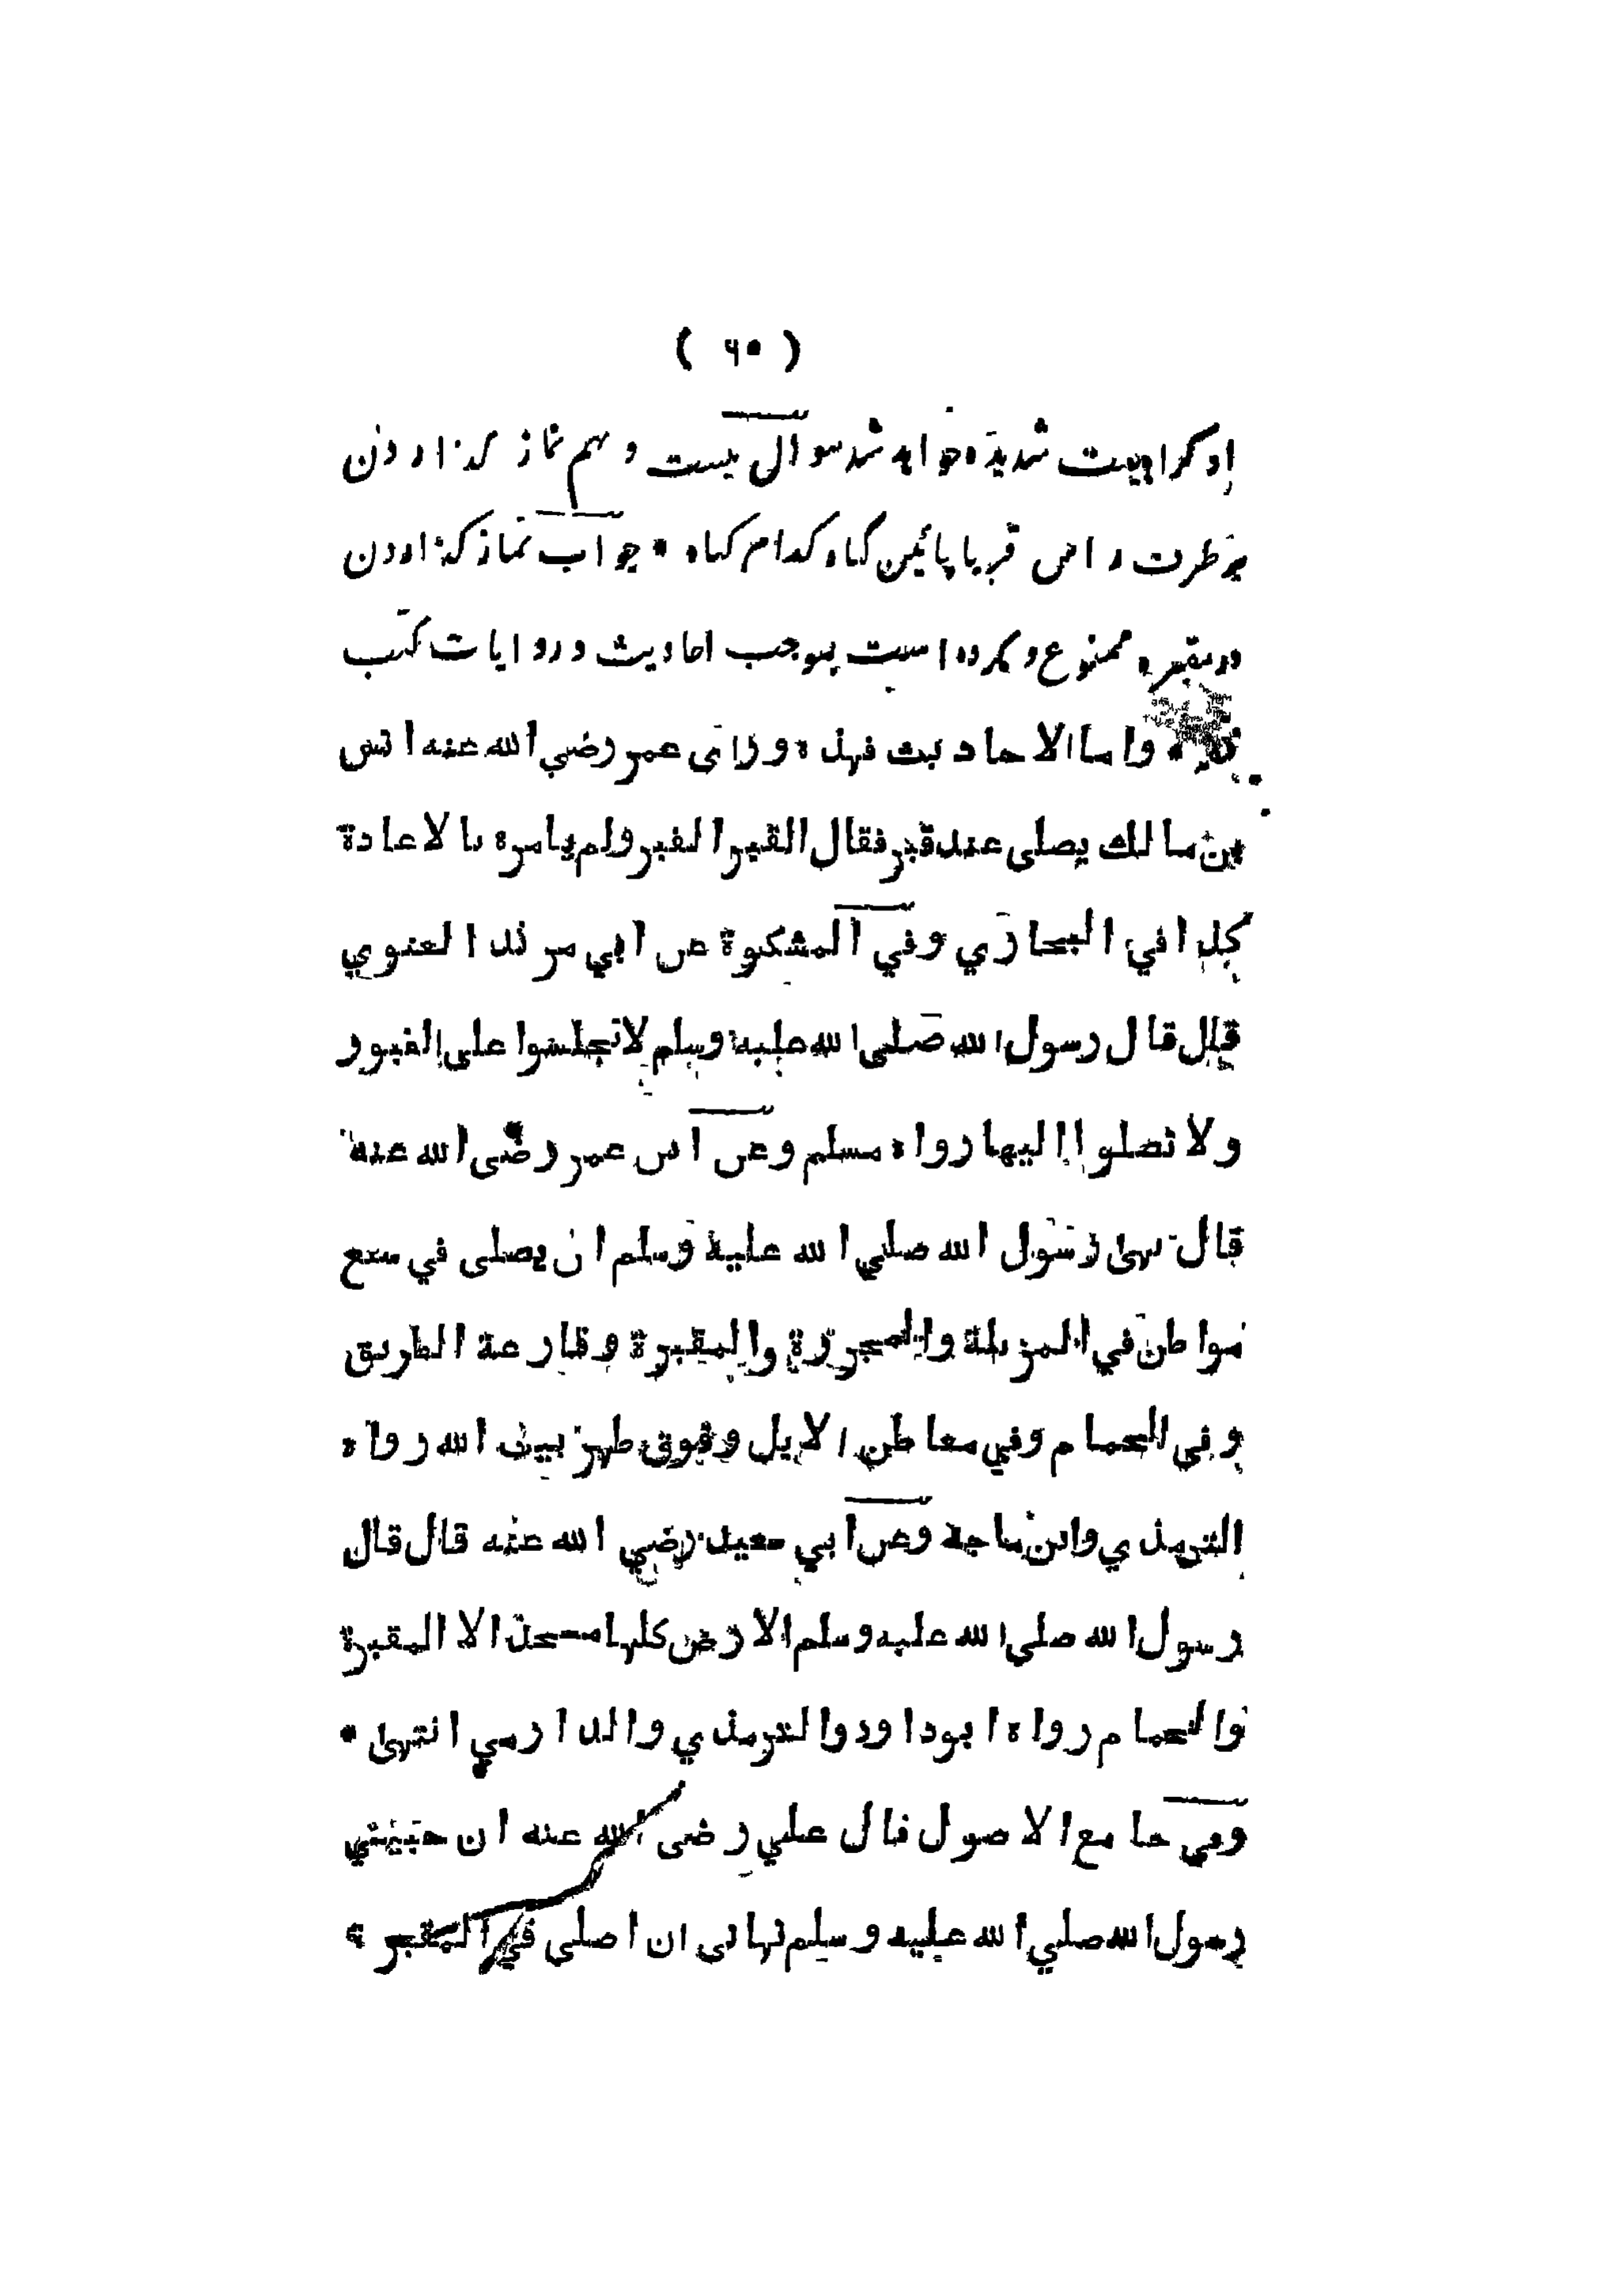 ( ٦٠ )
او کراهیت شدیده خواهد شد سوال بیست و سهم نماز گذاردن
بر طرف راس قبر یا پائین گناه کدام گناه * جواب نماز گذاردن
در مقبره ممنوع و مکروه است بموجب احادیث و روایات کتب
واما الاحاديث فهذه ورأى عمر رضي الله عنه انس
بن مالك يصلى عند قبر فقال القبر القبر ولم يامره بالاعادة
كذا في البخاري وفي المشكوة عن ابي مرثد الغنوي
قال قال رسول الله صلى الله عليه وسلم لا تجلسوا على القبور
ولا تصلوا اليها رواه مسلم وعن ابن عمر رضى الله عنه
قال نهى رسول الله صلي الله عليه وسلم ان يصلى في سبع
مواطن في المزبلة والمجزرة والمقبرة وقارعة الطريق
وفي الحمام وفي معاطن الابل وفوق ظهر بيت الله رواه
الترمذي وابن ماجة وعن ابي سعيد رضي الله عنه قال قال
رسول الله صلي الله عليه وسلم الارض كلها مسجد الا المقبرة
والحمام رواه ابوداود والترمذي والدارمي انتهى *
وفي جامع الاصول قال علي رضى الله عنه ان حبيبي
رسول الله صلي الله عليه وسلم نهانى ان اصلى في المقبرة